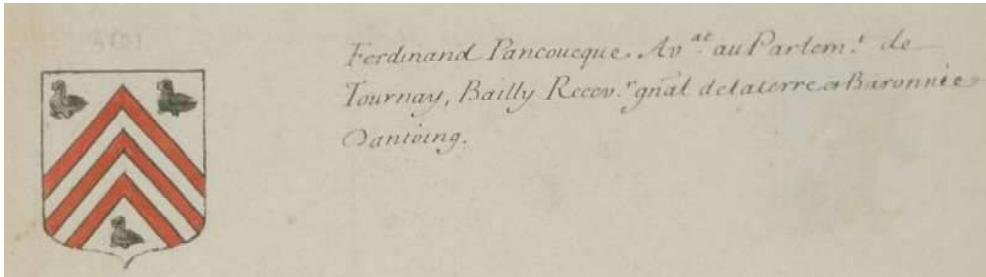 Ferdinand Pancoucque. Av.at au Parlem.t de
Tournay, Bailly Recev.r gñal de la terre et Baronnie
Dantoing.